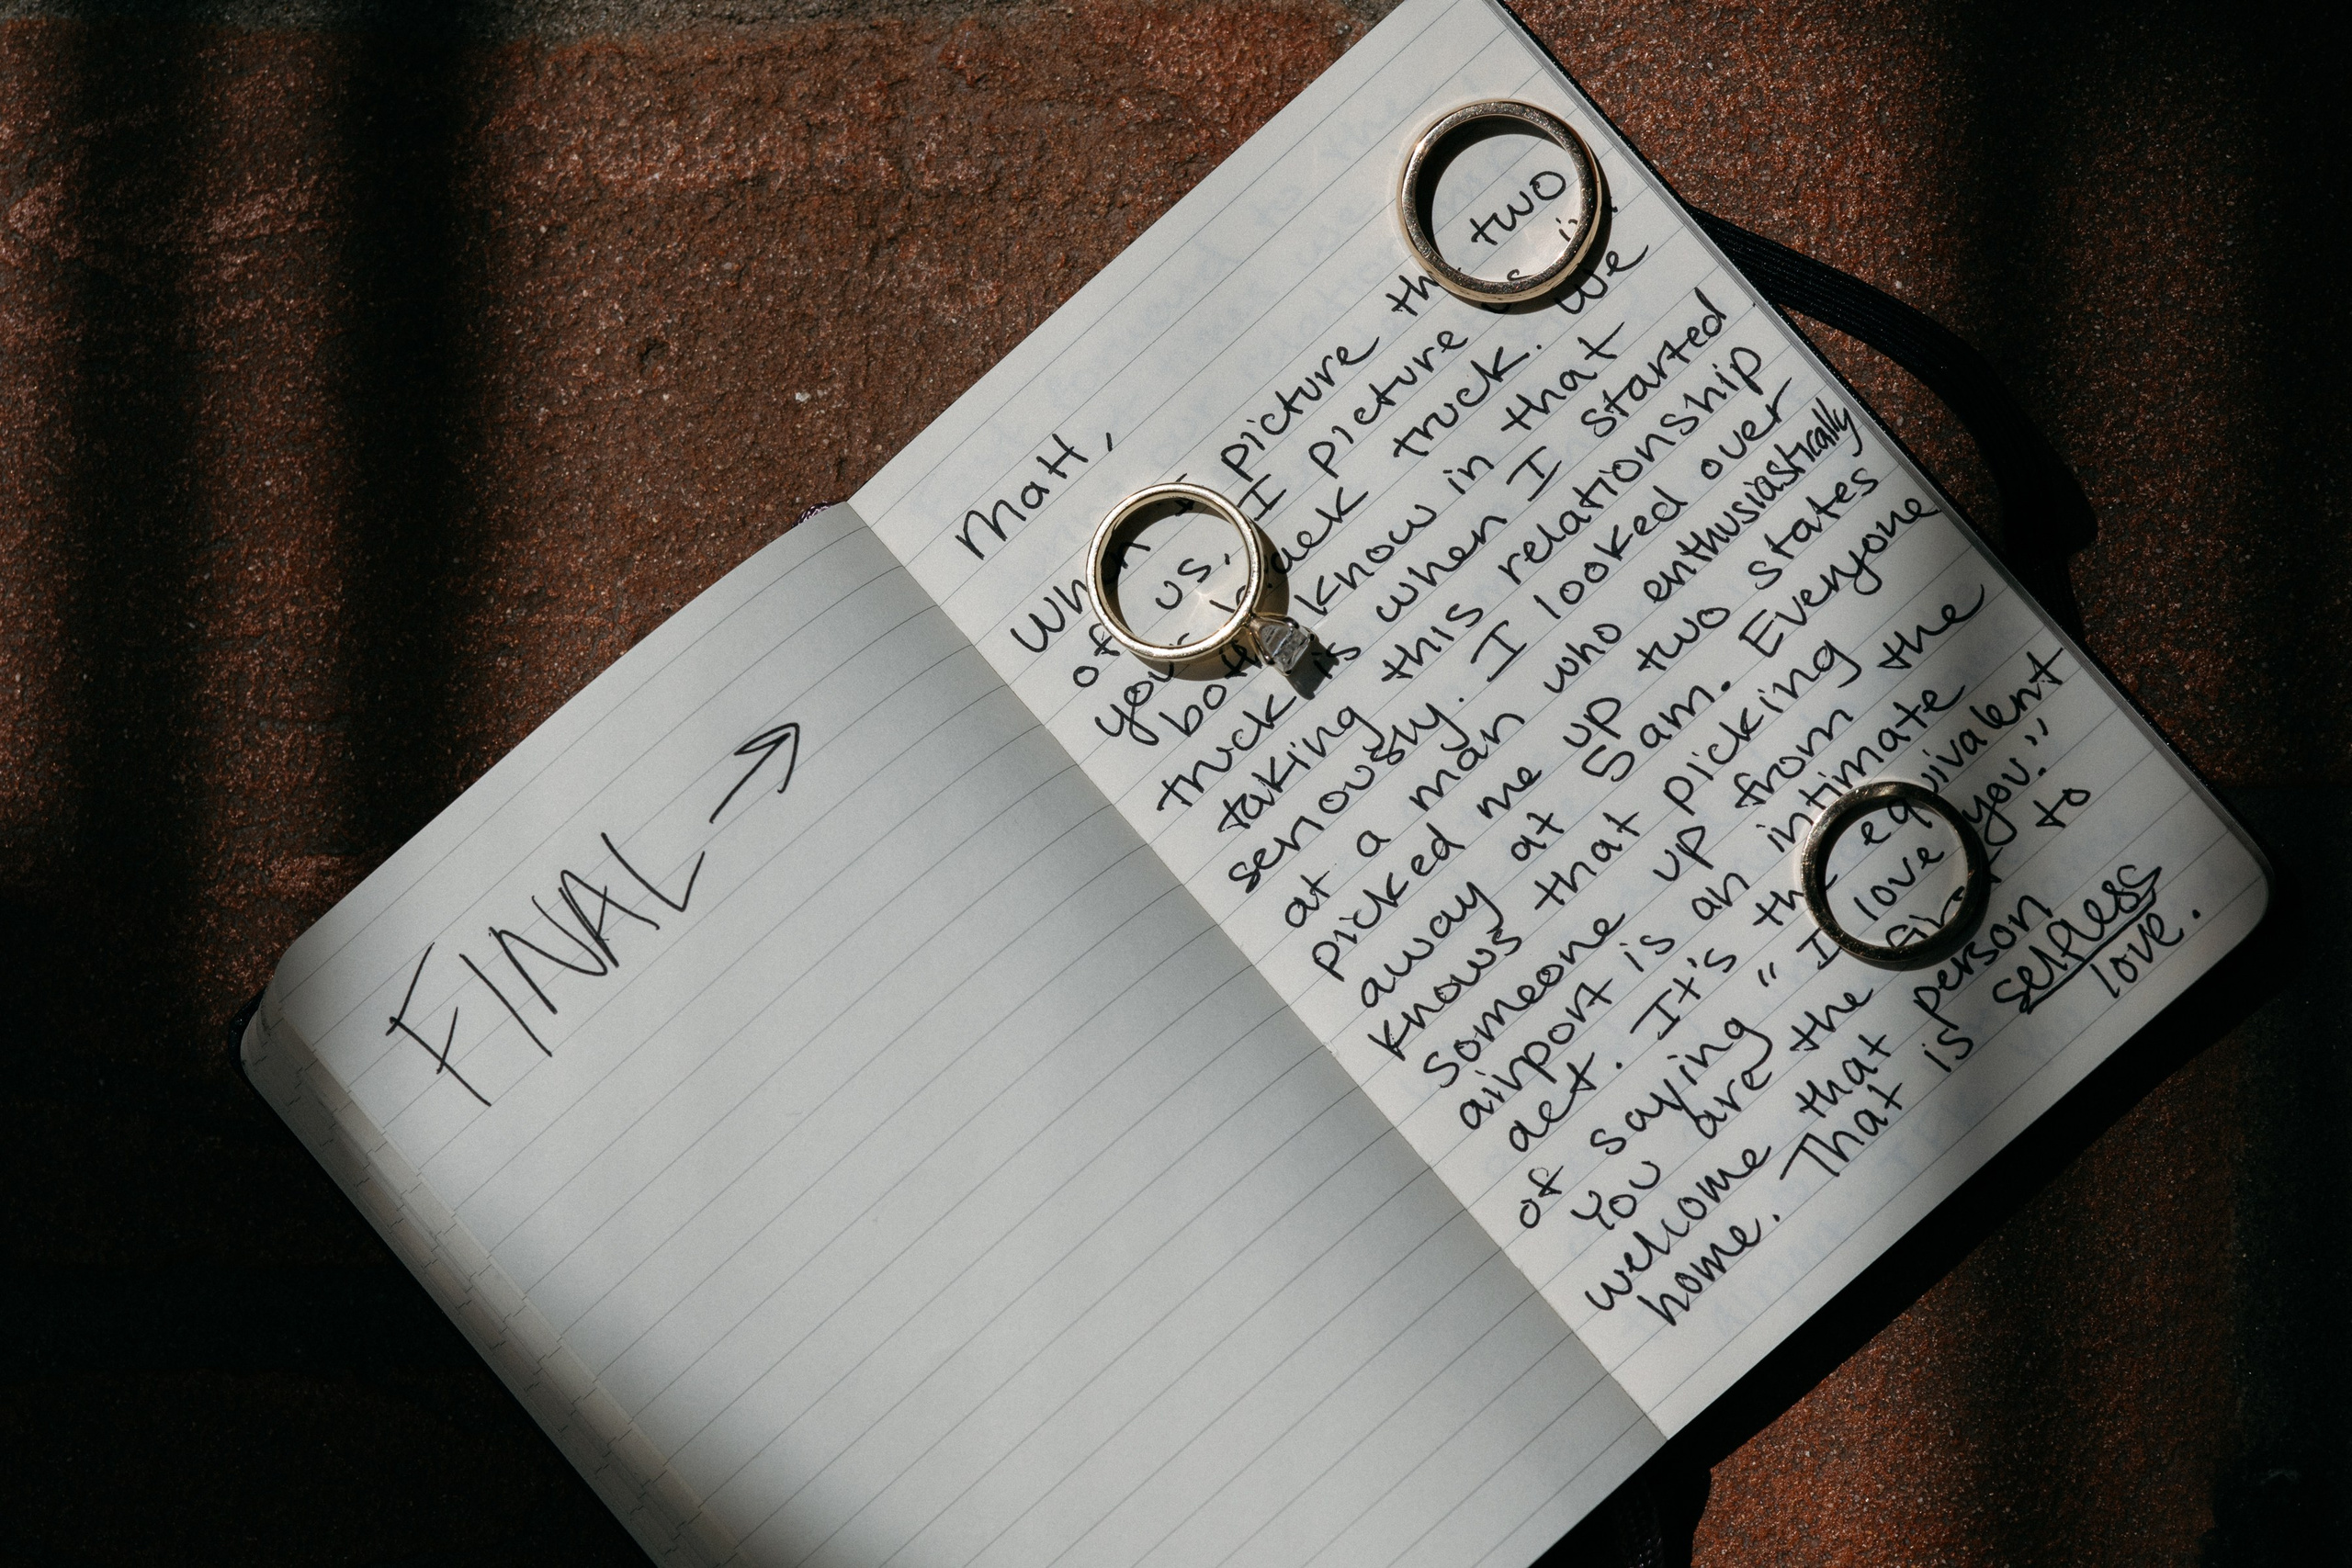 FINAL →
Matt,
When I picture the two
of us, I picture us in
your black truck. We
both know in that
truck is when I started
taking this relationship
seriously. I looked over
at a man who enthusiastically
picked me up two states
away at 5am. Everyone
knows that picking
someone up from the
airport is an intimate
act. It's the equivalent
of saying "I love you."
You are the first to
welcome that person
home. That is selfless
love.